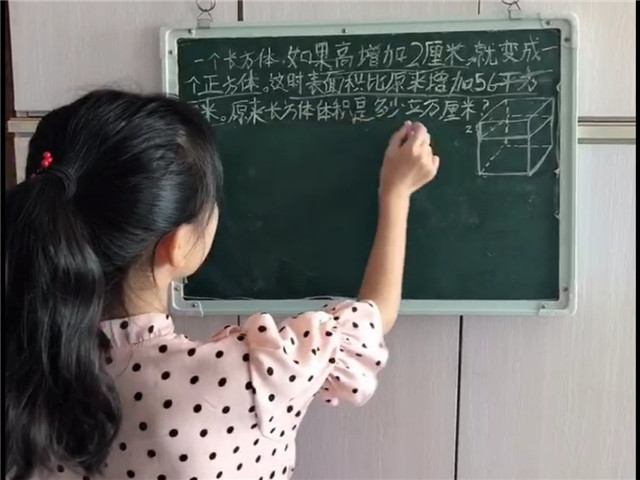 一个长方体，如果高增加2厘米，就变成一
个正方体。这时表面积比原来增加56平方
米。原来长方体体积是多少立方厘米？
2